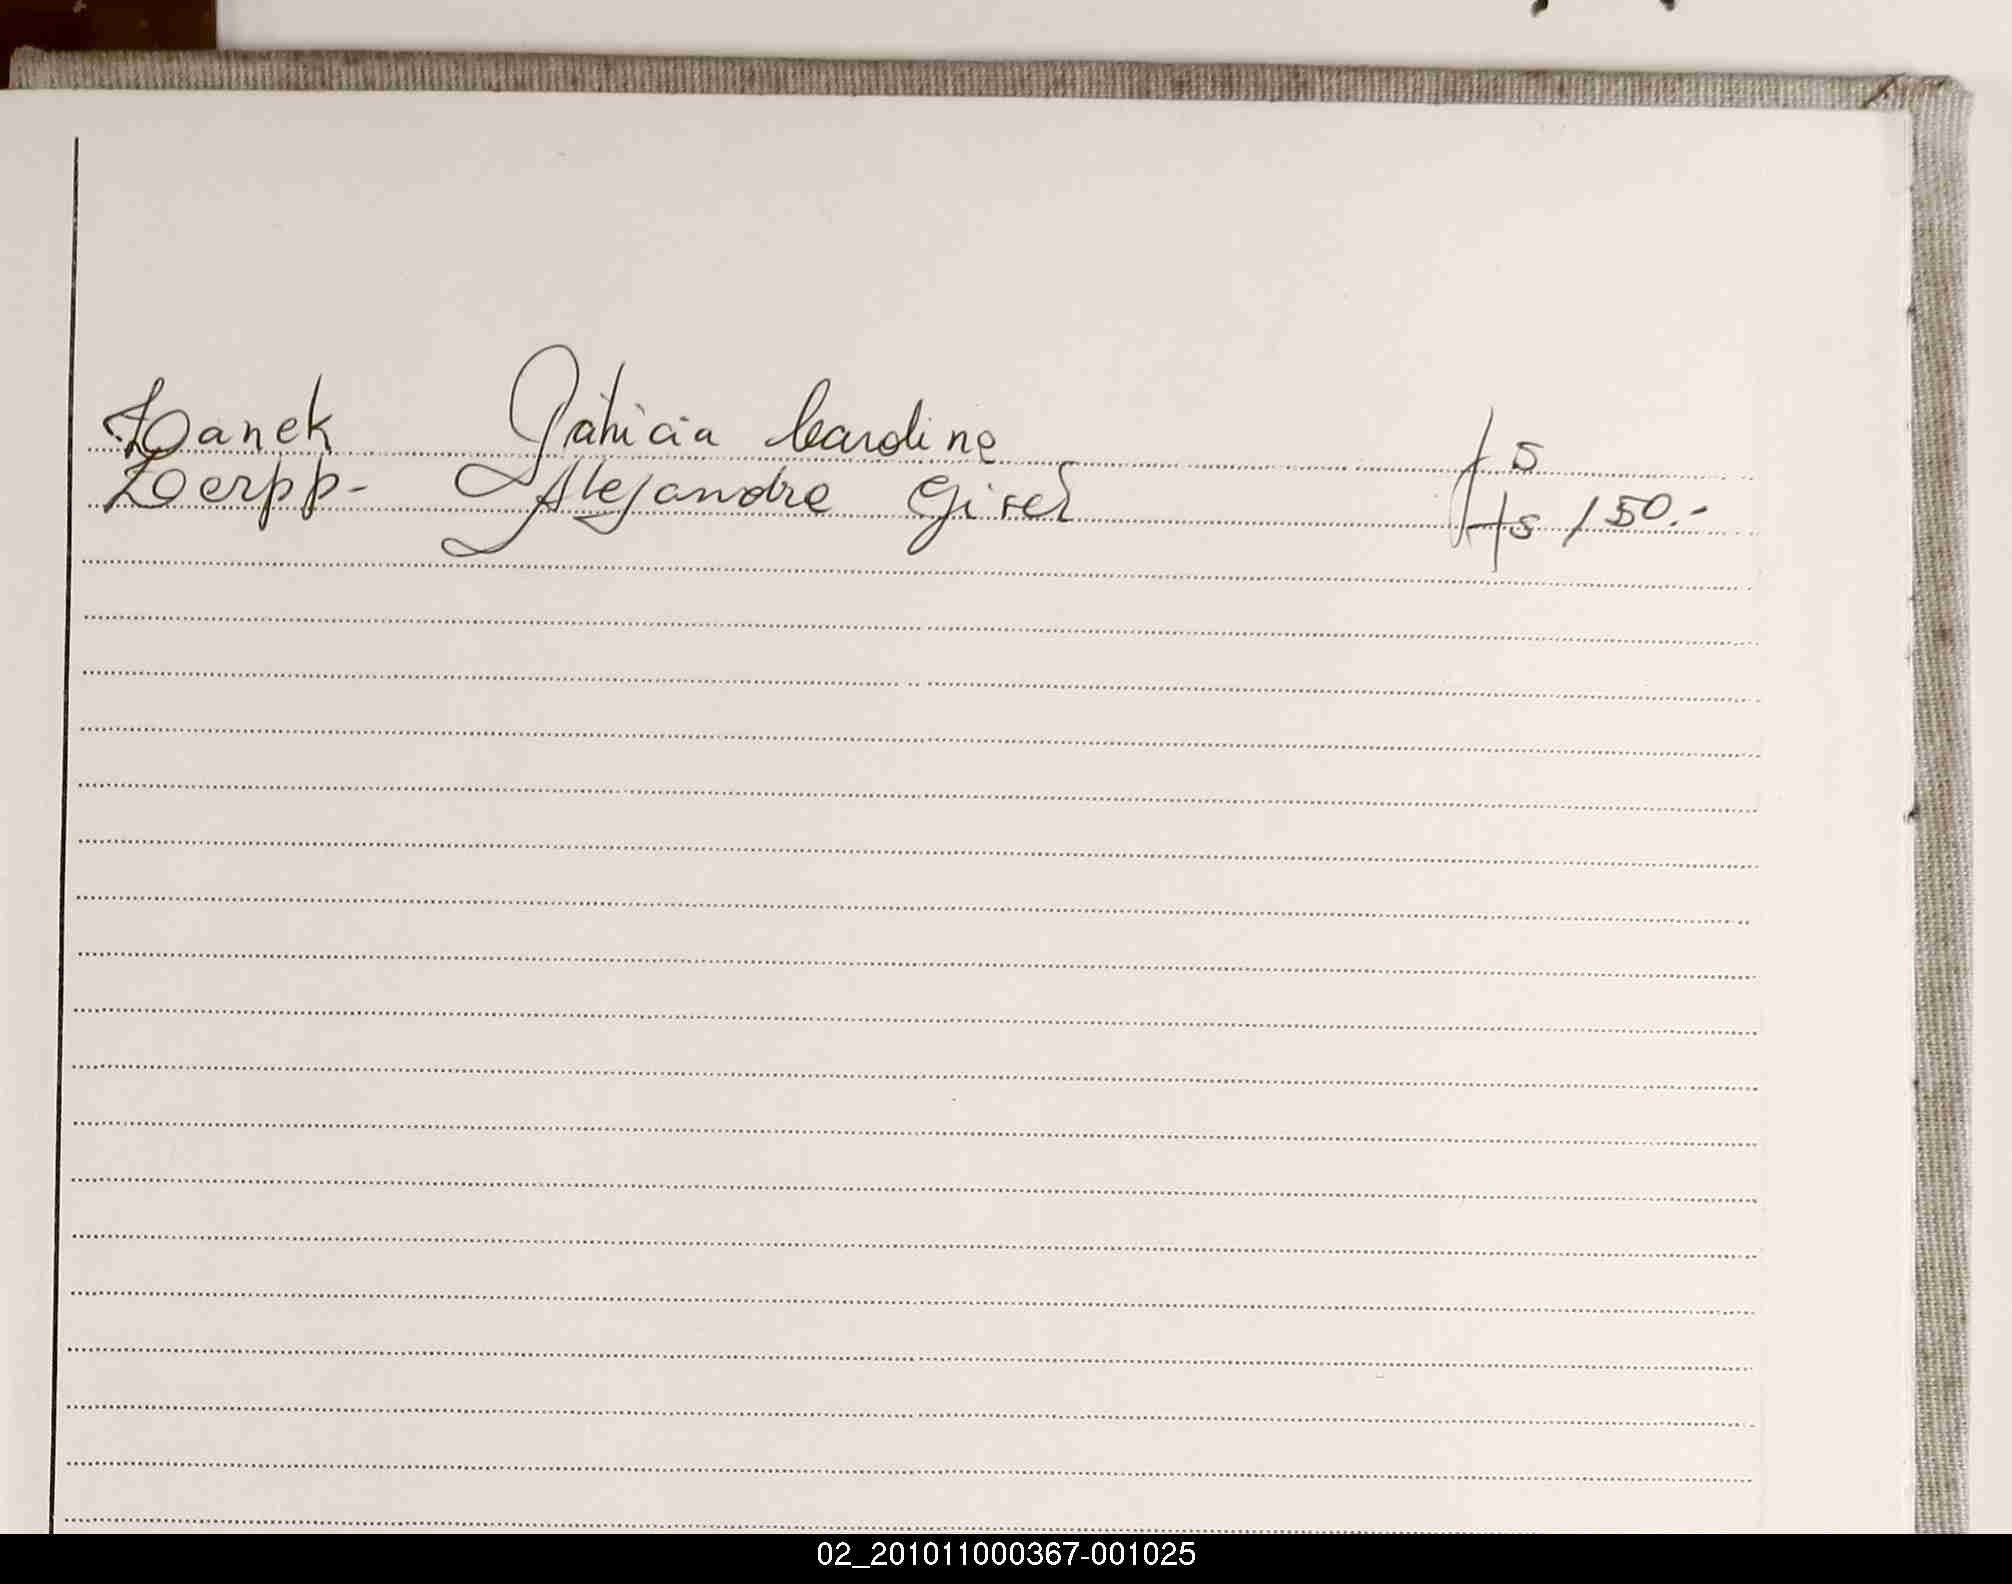 Zanek Patricia Carolina fs 5
Zerpp- Alejandra Gisel fs 150.-
02_201011000367-001025